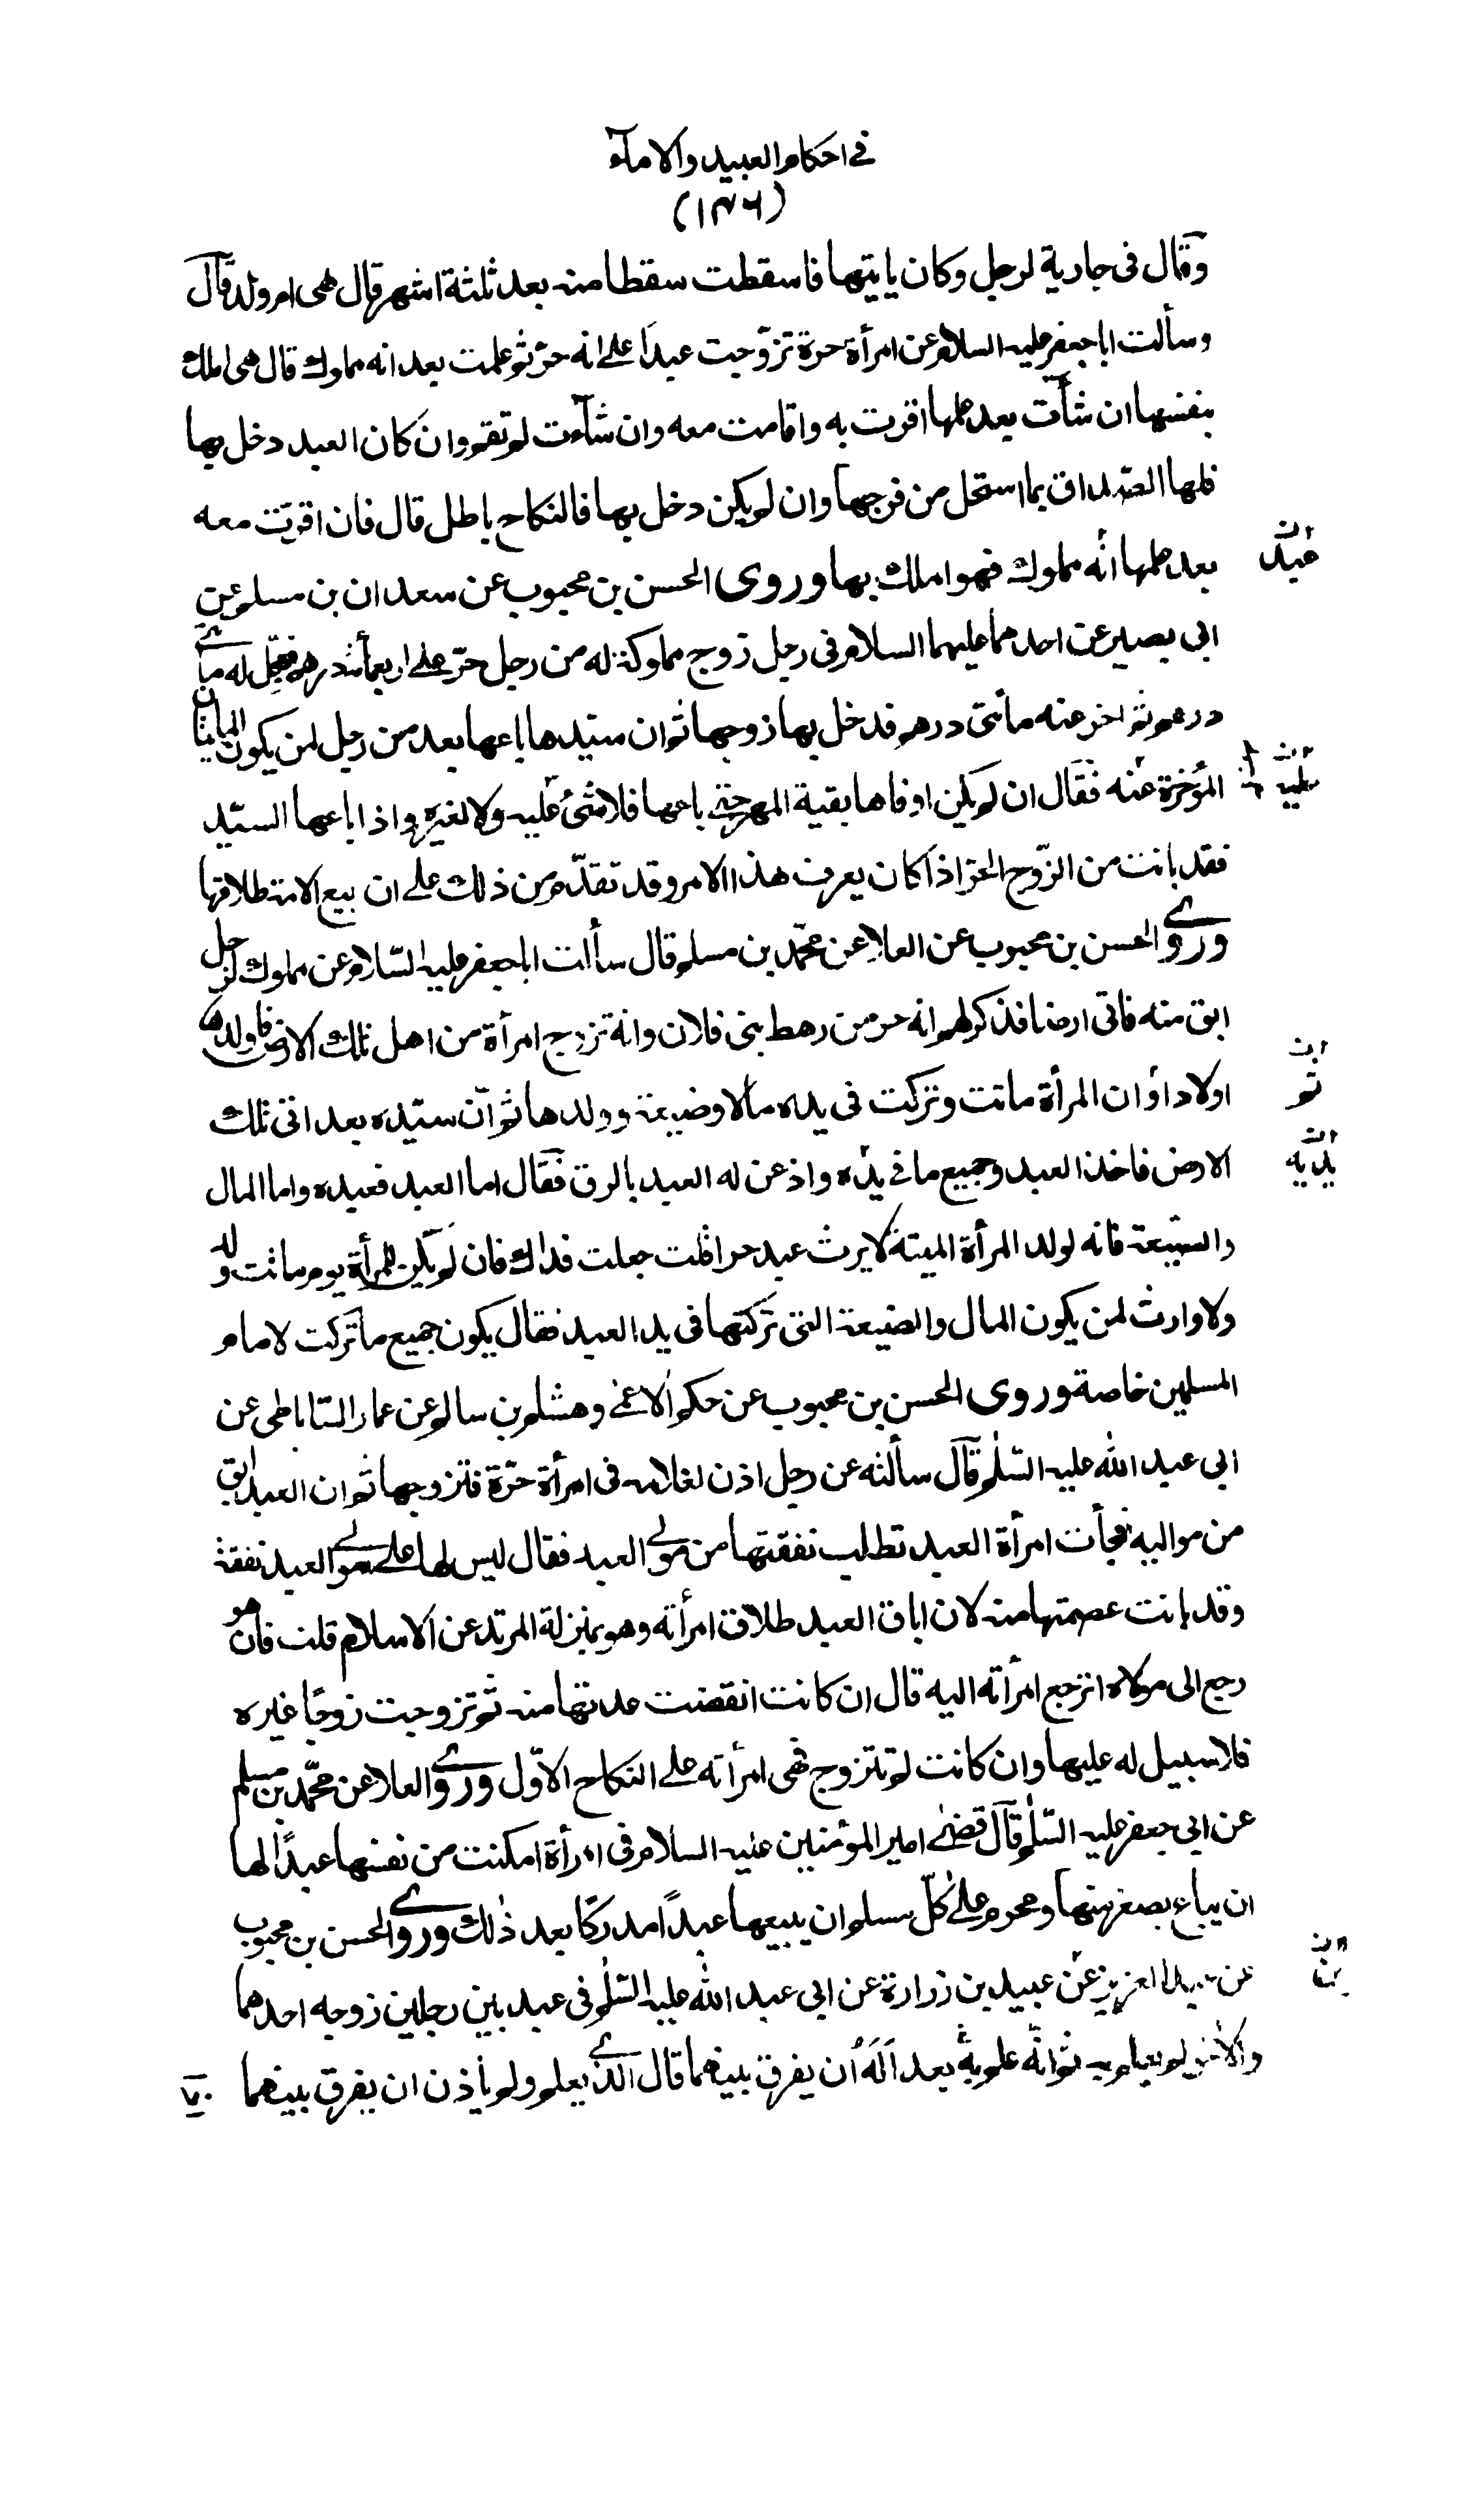 في احكام العبيد والاماۤء
(١٣٦)
وقال فى جارية لرجل وكان ياتيها فاسقطت سقطا منه بعد ثلثة اشهر قال هى ام ولد قال
وسألت ابا جعفر عليه السلام عن امرأة حرة تزوّجت عبدا على انه حرّ ثم علمت بعد انه مملوك قال هى املك
بنفسها ان شاۤت بعد علمها اقرت به واقامت معه وان شاۤءت لم تقم وان كان العبد دخل بها
فلها الصّداق بما استحل من فرجها وان لم يكن دخل بها فالنكاح باطل قال فان اقرّت معه
بعد علمها انّه مملوك فهو املك بها وروى الحسن بن محبوب عن سعدان بن مسلم عن
ابى بصير عن احدهما عليهما السلام فى رجل زوج مملوكة له من رجل حرّ على اربعمأئة درهم فعجّل له مأتى
درهم ثم اخر عنه مأتى درهم فدخل بها زوجها ثم ان سيّدها باعها بعد من رجل لمن يكون المايتان
المؤخرة عنه فقال ان لم يكن اوفاها بقية المهر حتى باعها فلا شئ عليه ولا لغيره واذا باعها السيّد
فقد بانت من الزّوج الحرّ اذا كان يعرف هذا الامر وقد تقدّم من ذلك على ان بيع الامة طلاقها
وروى الحسن بن محبوب عن العلا عن محمّد بن مسلم قال سألت ابا جعفر عليه السّلام عن مملوك لرجل
ابق منه فاتى ارضا فذكر لهم انه حر من رهط بنى فلان وانه تزوج امرأة من اهل تلك الارض فاولدها
اولادا وان المرأة ماتت وتركت فى يده مالا وضيعة وولدها ثم انّ سيّده بعد اتى تلك
الارض فاخذ العبد وجميع ما في يده واذعن له العبد بالرق فقال اما العبد فعبده واما المال
والضيعة فانه لولد المرأة الميتة لا يرث عبد حرا قلت جعلت فداك فان لم يكن للمرأة يوم ماتت ولد
ولا وارث لمن يكون المال والضيعة التى تركتها فى يد العبد فقال يكون جميع ما تركت لامام
المسلمين خاصة وروى الحسن بن محبوب عن حكم الاعمى وهشام بن سالم عن عمار السّاباطى عن
ابى عبد الله عليه السّلم قال سألته عن رجل اذن لغلامه فى امرأة حرّة فتزوجها ثم ان العبد ابق
من مواليه فجأت امرأة العبد تطلب نفقتها من مولى العبد فقال ليس لها على مولى العبد نفقة
وقد بانت عصمتها منه لان اباق العبد طلاق امرأته وهو بمنزلة المرتد عن الاسلام قلت فان هو
رجع الى مولاه اترجع امرأته اليه قال ان كانت انقضت عدتها منه ثم تزوجت زوجًا غيره
فلا سبيل له عليها وان كانت لم تتزوج فهى امرأته على النكاح الاوّل وروى العلا عن محمّد بن مسلم
عن ابى جعفر عليه السّلم قال قضى امير المؤمنين عليه السلام فى امرأة امكنت من نفسها عبدًا لها
ان يباع بصغر منها ومحرم على كلّ مسلم ان يبيعها عبدًا مدركا بعد ذلك وروى الحسن بن محبوب
عن عبد العزيز عن عبيد بن زرارة عن ابى عبد الله عليه السّلم فى عبد بين رجلين زوجه احدهما
والاخر لم يعلم به ثم انه علم به بعد اَلَهُ اَن يفرق بينهما قال الّذى يعلم ولم يأذن ان يفرق بينهما
عبدٌ
ثم
يديه
بن